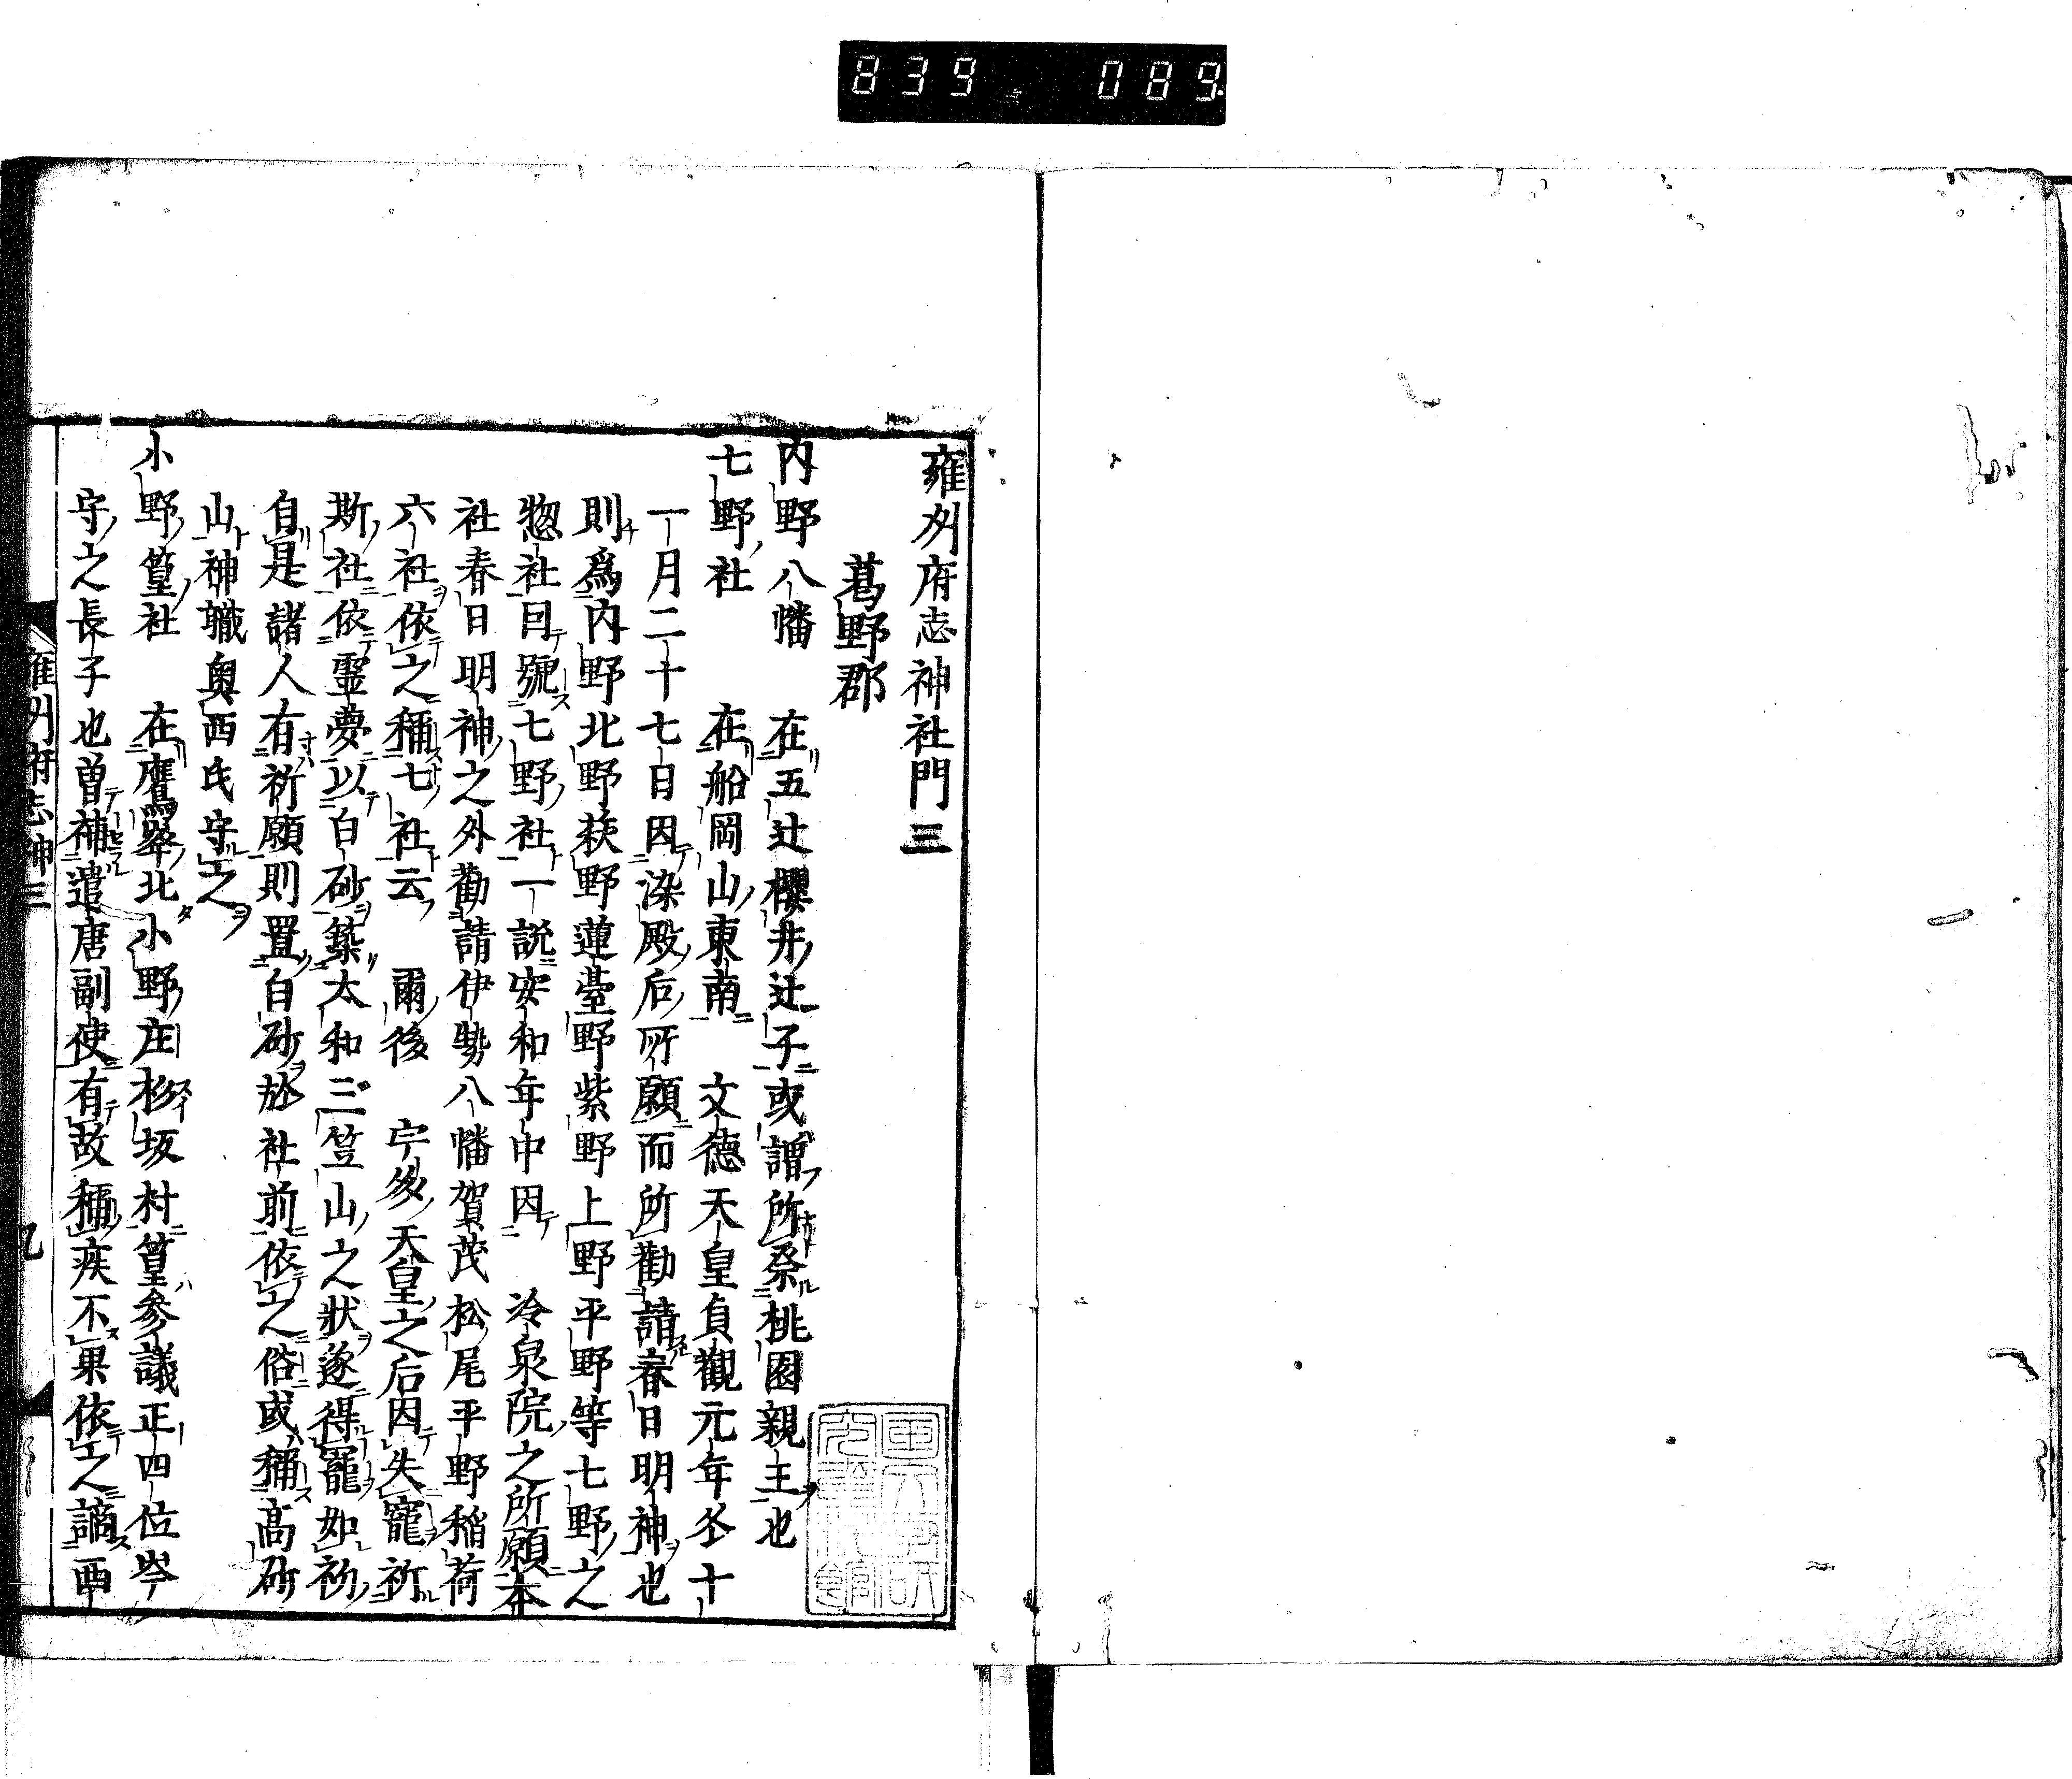 839 089
雍州府志神社門三
葛野郡
内野八幡　在五辻櫻井辻子或謂所祭桃園親王也
七野社　在船岡山東南　文德天皇貞觀元年冬十
一月二十七日因染殿后所願而所勸請春日明神也
則爲内野北野萩野蓮臺野紫野上野平野等七野之
惣社因號七野社一說安和年中因　冷泉院之所願本
社春日明神之外勸請伊勢八幡賀茂松尾平野稲荷
六社依之稱七社云　爾後　宇多天皇之后因失寵祈
斯社依靈夢以白砂築大和三笠山之狀遂得寵如初
自是諸人有祈願則置白砂於社前依之俗或稱高砂
山神職奥西氏守之
小野篁社　在鷹峯北小野庄杉坂村篁參議正四位岑
守之長子也曽補遣唐副使有故稱疾不果依之謫
雍州府志神三